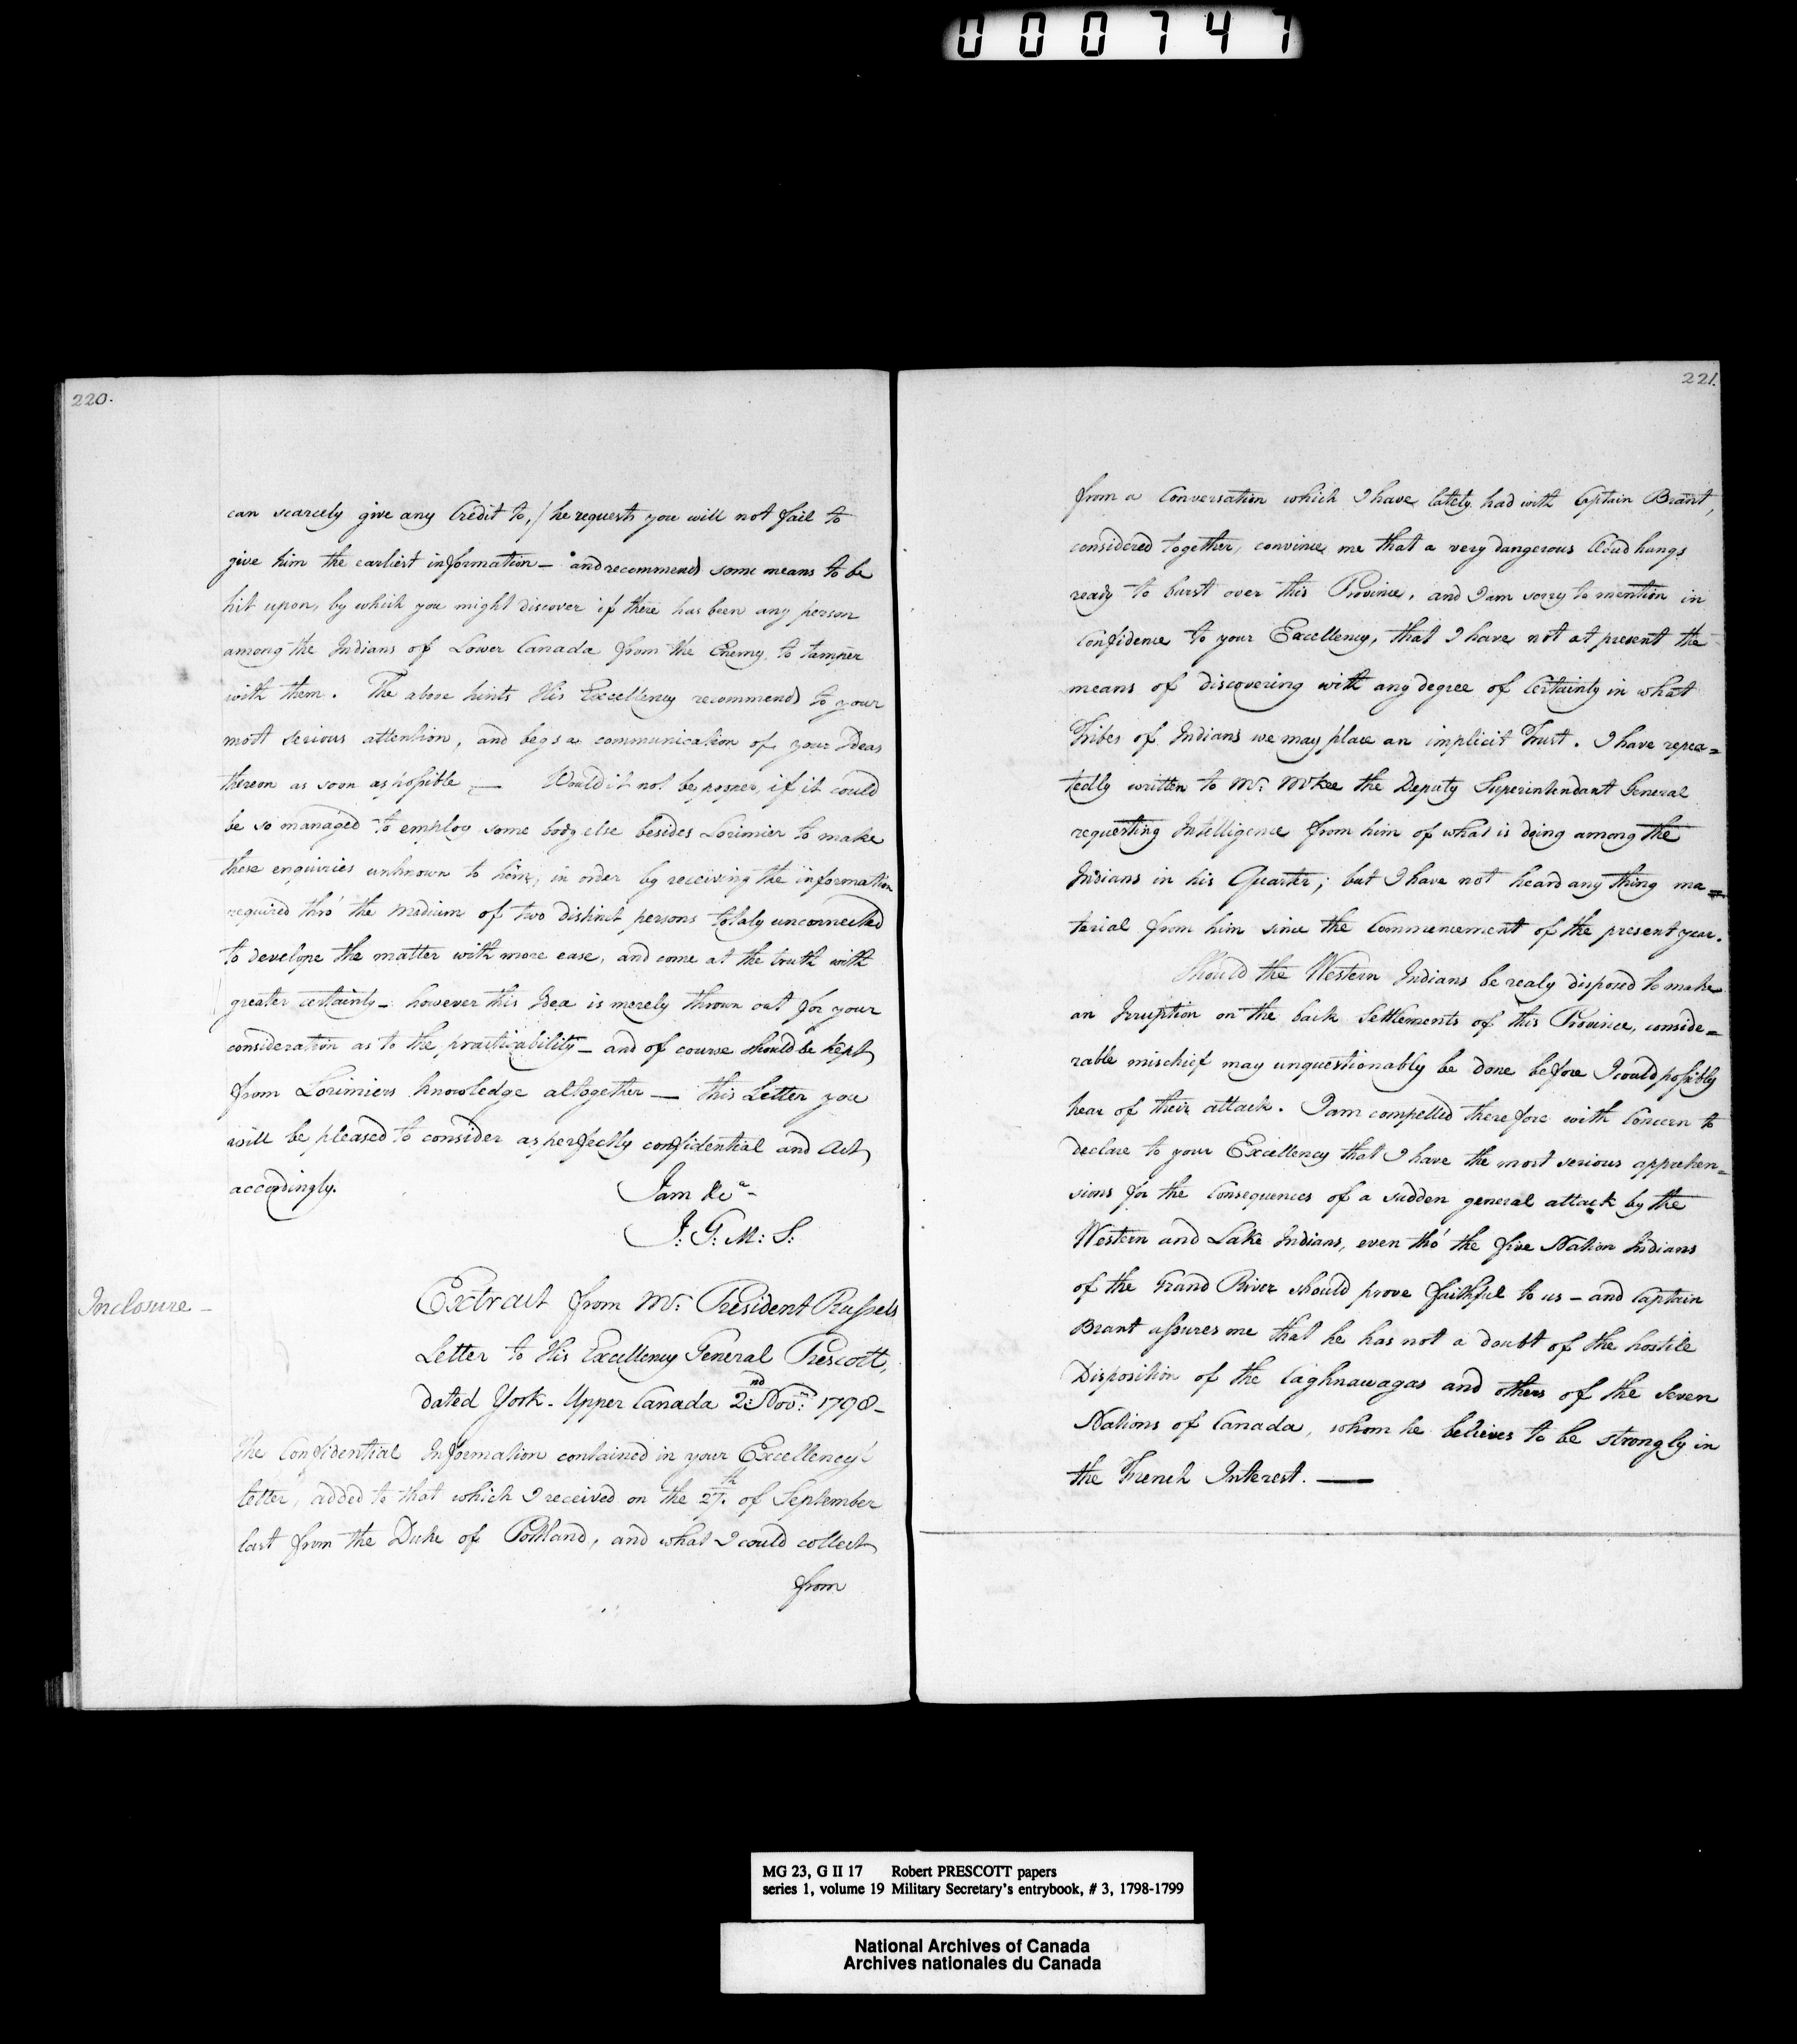 000747
220.
can scarcely give any Credit to,/ he requests you will not fail to
give him the earliest information — and recommends some means to be
hit upon, by which you might discover if there has been any person
among the Indians of Lower Canada from the Enemy to tamper
with them. The above hints His Excellency recommends to your
most serious attention, and begs a communication of your Ideas
thereon as soon as possible — Would it not be proper, if it could
be so managed to employ some body else besides Lorimier to make
these enquiries unknown to him, in order by receiving the information
required thro' the medium of two distinct persons totaly unconnected
to develope the matter with more ease, and come at the truth with
greater certainty — however this Idea is merely thrown out for your
consideration as to the practicability — and of course should be kept
from Lorimiers knowledge altogether — this Letter you
will be pleased to consider as perfectly confidential and Act
accordingly.
I am &ca-
J: G: M: S:
Inclosure —
Extract from Mr: President Russels
Letter to His Excellency General Prescott,
dated York - Upper Canada 2nd: Novr: 1798 -
The Confidential Information contained in your Excellency'
letter, added to that which I received on the 27th. of September
last from the Duke of Portland, and what I could collect
from
221.
from a Conversation which I have lately had with Captain Brant,
considered together, convince me that a very dangerous Cloud hangs
ready to burst over this Province, and I am sorry to mention in
Confidence to your Excellency, that I have not at present the
means of discovering with any degree of Certainty in what
Tribes of Indians we may place an implicit Trust. I have repea=
tedly written to Mr: McKee the Deputy Superintendant General
requesting Intelligence from him of what is doing among the
Indians in his Quarter; but I have not heard any thing ma=
terial from him since the Commencement of the present year.
Should the Western Indians be realy disposed to make
an Irruption on the back Settlements of this Province, conside=
rable mischief may unquestionably be done before I could possibly
hear of their attack. I am compelled therefore with Concern to
declare to your Excellency that I have the most serious apprehen=
sions for the Consequences of a sudden general attack by the
Western and Lake Indians, even tho' the five Nation Indians
of the Grand River should prove faithful to us — and Captain
Brant assures me that he has not a doubt of the hostile
Disposition of the Caghnawagas and others of the Seven
Nations of Canada, whom he believes to be strongly in
the French Interest. —
MG 23, G II 17 Robert PRESCOTT papers
series 1, volume 19 Military Secretary's entrybook, # 3, 1798-1799
National Archives of Canada
Archives nationales du Canada